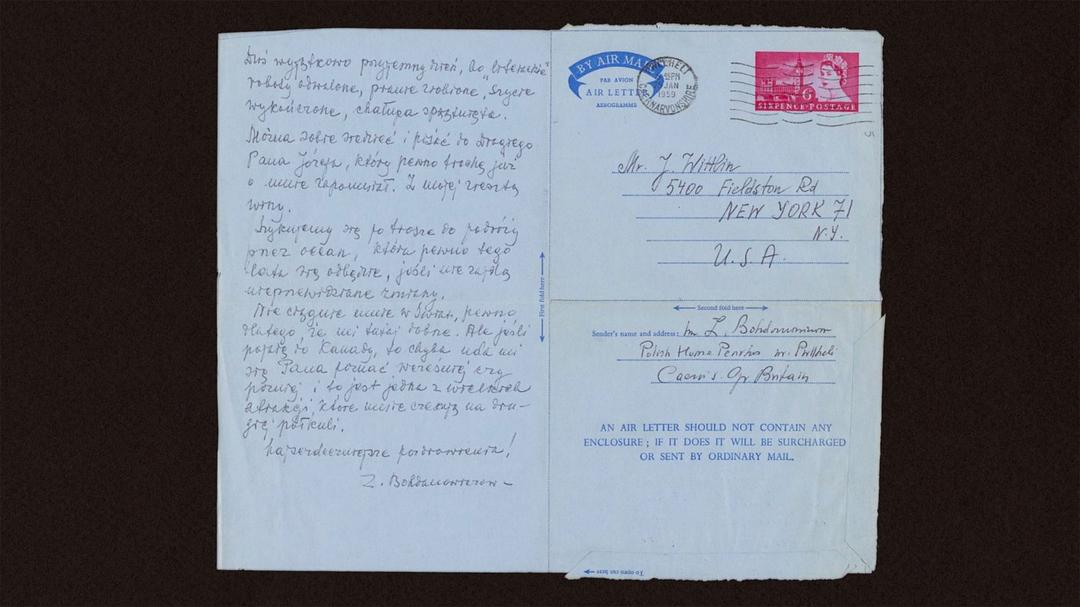 Dziś wyjątkowo przyjemny dzień, bo "literackie"
roboty odwalone, pranie zrobione, szycie
wykończone, chałupa sprzątnięta.
Można sobie siedzieć i pisać do Drogiego
Pana Józefa, który pewno trochę już
o mnie zapomniał. Z mojej zresztą
winy.
Szykujemy się po trosze do podróży
przez ocean, która pewno tego
lata się odbędzie, jeśli nie zajdą
nieprzewidziane zmiany.
Nie ciągnie mnie w świat, pewno
dlatego że mi tutaj dobrze. Ale jeśli
pojadę do Kanady, to chyba uda mi
się Pana poznać wcześniej czy
później i to jest jedna z wielkich
atrakcji, które mnie czekają na dru-
giej półkuli.
Najserdeczniejsze pozdrowienia!
Z. Bohdanowiczowa
BY AIR MAIL
PAR AVION
AIR LETTER
AEROGRAMME
PWLLHELI
PM
JAN
1959
CAERNARVONSHIRE
6
SIXPENCE POSTAGE
Mr. J. Wittlin
5400 Fieldston Rd
NEW YORK 71
N.Y.
U.S.A.
First fold here
Second fold here
Sender's name and address: Z. Bohdanowiczowa
Polish Home Penrhos nr. Pwllheli
Caerns. Gr. Britain
AN AIR LETTER SHOULD NOT CONTAIN ANY
ENCLOSURE; IF IT DOES IT WILL BE SURCHARGED
OR SENT BY ORDINARY MAIL.
To open cut here